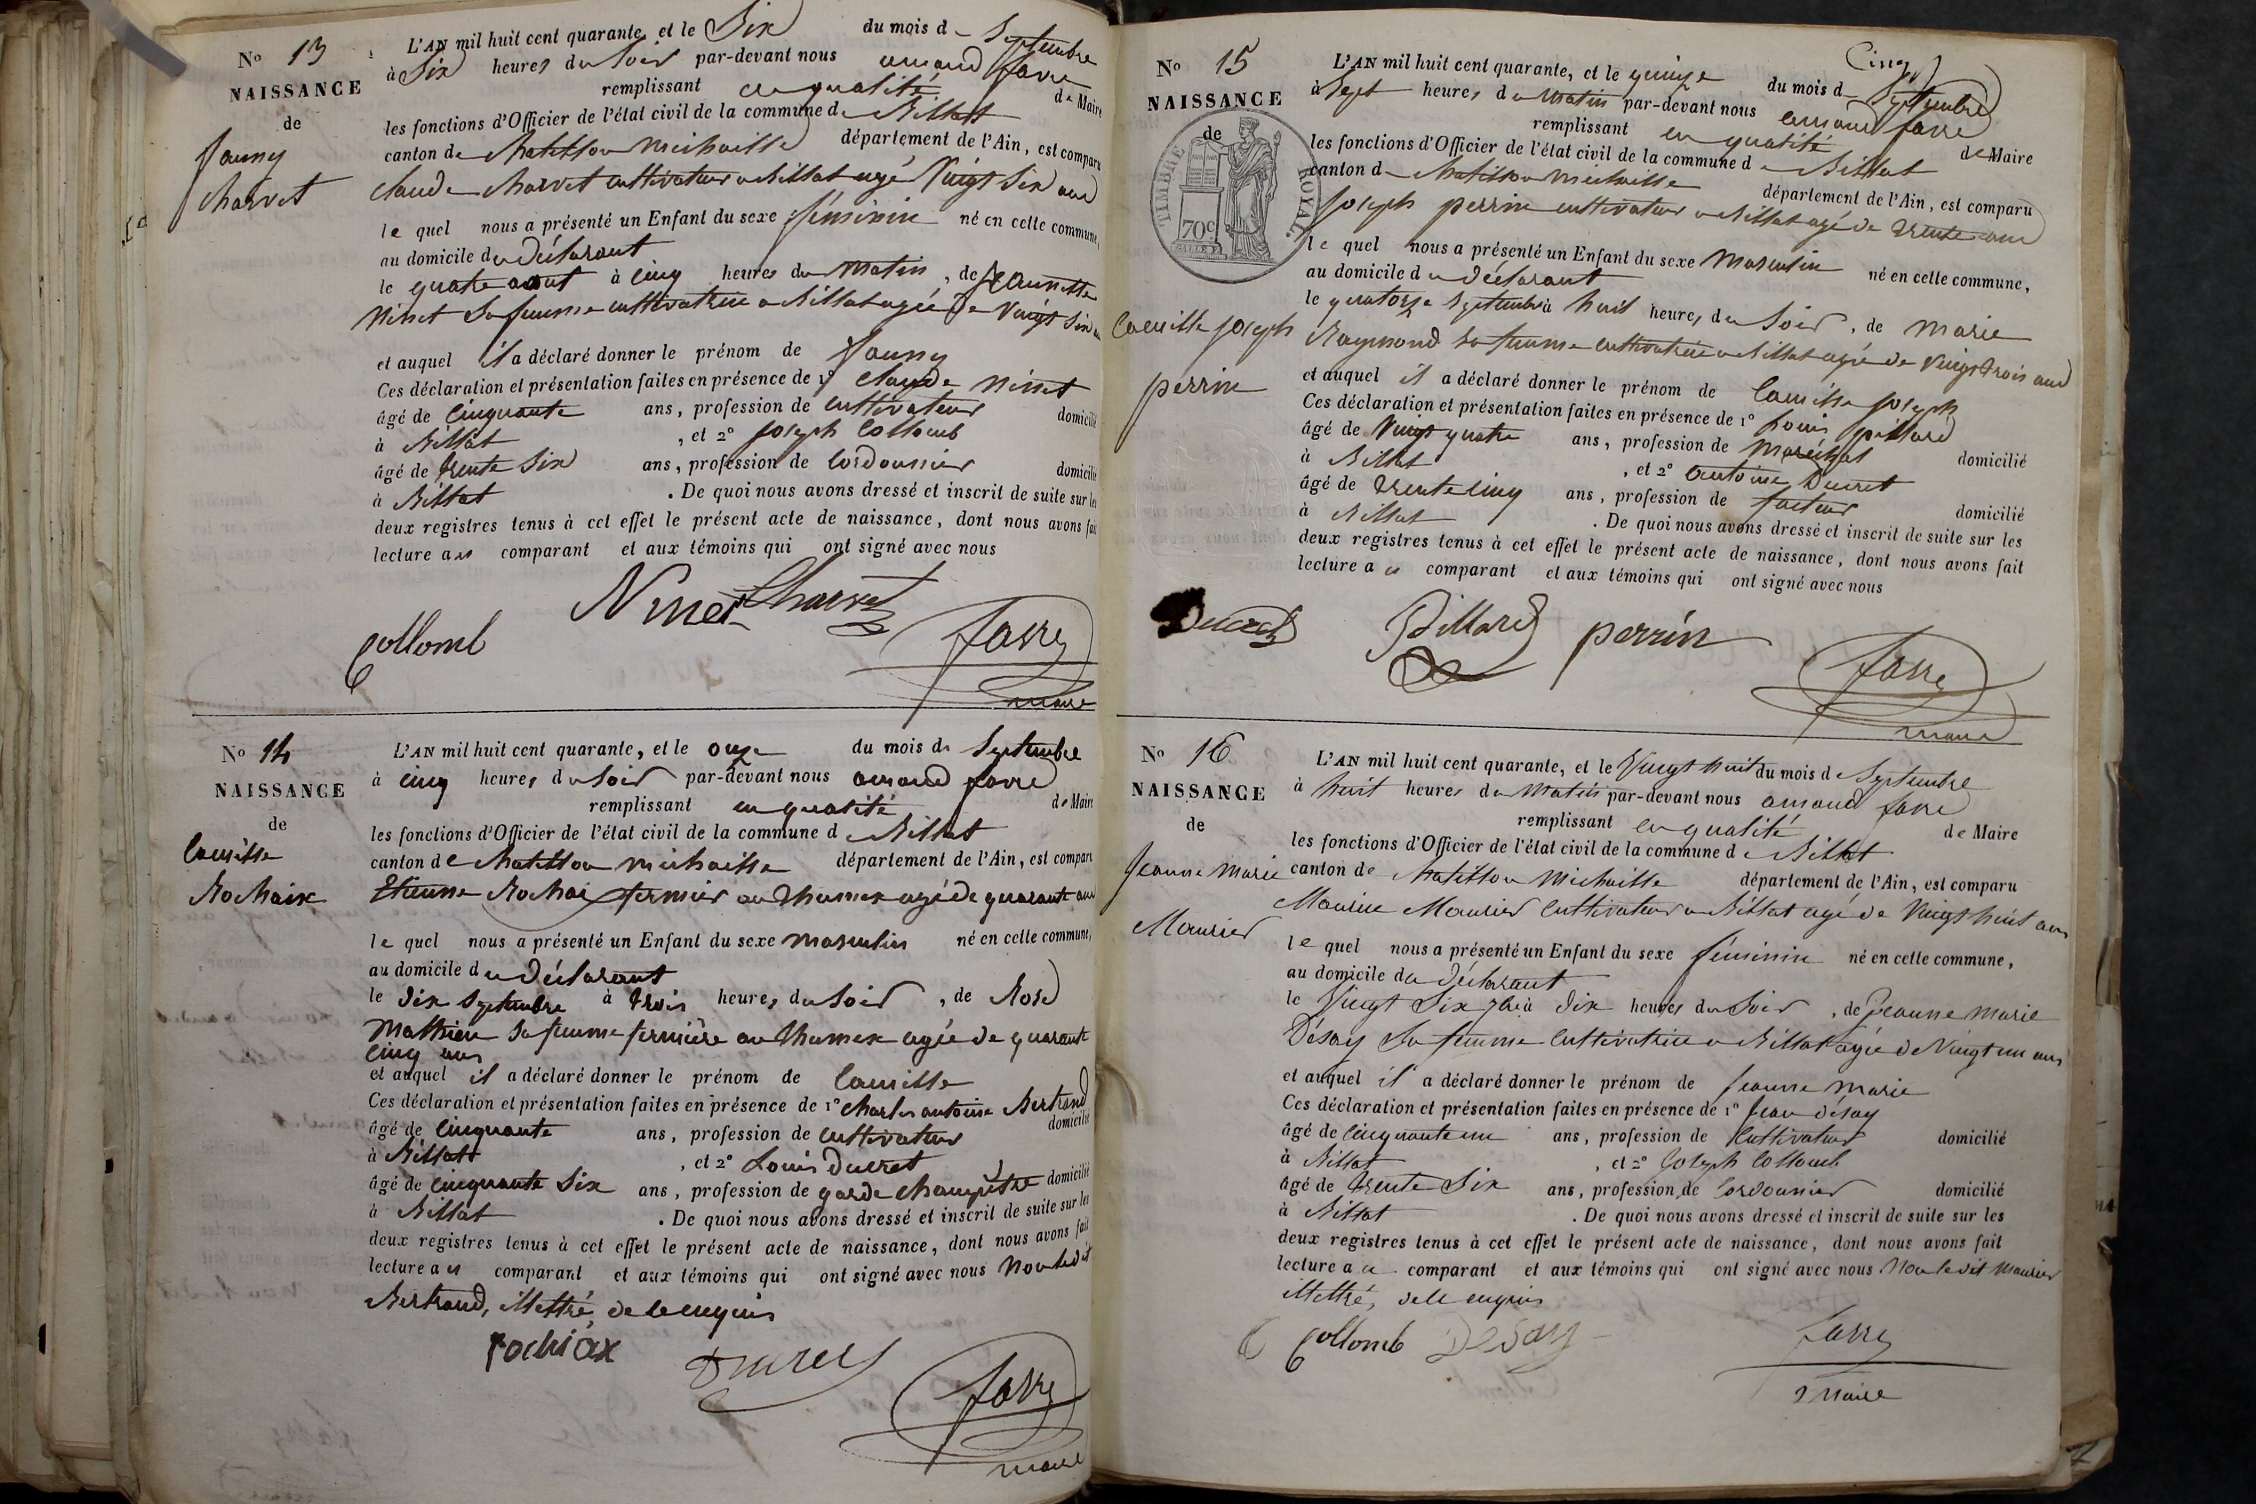 N° 13
NAISSANCE
de
fanny
charvet
L'AN mil huit cent quarante, et le Six du mois d Septembre
à Six heures du Soir par-devant nous amand favre
remplissant en qualité de Maire
les fonctions d'Officier de l'état civil de la commune de Billiat
canton de Chatillon Michaille département de l'Ain, est comparu
Claude Charvet cultivateur a Billiat agé Vingt Six ans
le quel nous a présenté un Enfant du sexe féminin né en cette commune,
au domicile du Déclarant
le quatre aout à Cinq heures du Matin, de jeannette
Ninet Sa femme cultivatrice a Billiat agée de Vingt Six ans
et auquel il a déclaré donner le prénom de fanny
Ces déclaration et présentation faites en présence de 1° Claude Ninet
âgé de Cinquante ans, profession de cultivateur domicilié
à Billiat, et 2° joseph Collomb
âgé de trente Six ans, profession de Cordonnier domicilié
à Billiat. De quoi nous avons dressé et inscrit de suite sur les
deux registres tenus à cet effet le présent acte de naissance, dont nous avons fait
lecture au comparant et aux témoins qui ont signé avec nous
Ninet Charvet
Collomb favre
maire
N° 14
NAISSANCE
de
Camille
Rochaix
L'AN mil huit cent quarante, et le onze du mois de Septembre
à cinq heures du Soir par-devant nous amand favre
remplissant en qualité de Maire
les fonctions d'Officier de l'état civil de la commune de Billiat
canton de Chatillon michaille département de l'Ain, est comparu
Etienne Rochaix fermier au thumex agé de quarante ans
le quel nous a présenté un Enfant du sexe masculin né en cette commune,
au domicile du Déclarant
le Dix Septembre à trois heures du Soir, de Rose
Mathieu Sa femme fermière au thumex agée de quarante
cinq ans
et auquel il a déclaré donner le prénom de Camille
Ces déclaration et présentation faites en présence de 1° Charles antoine Bertrand
âgé de Cinquante ans, profession de cultivateur domicilié
à Billiat, et 2° Louis Ducret
âgé de cinquante Six ans, profession de garde champêtre domicilié
à Billiat. De quoi nous avons dressé et inscrit de suite sur les
deux registres tenus à cet effet le présent acte de naissance, dont nous avons fait
lecture au comparant et aux témoins qui ont signé avec nous Non ledit
Bertrand, illettré, de ce enquis
rochiax
Ducret
favre
maire
Cinq
N° 15
NAISSANCE
de
TIMBRE ROYAL
70c
Camille joseph
perrin
L'AN mil huit cent quarante, et le quinze du mois d Septembre
à Sept heures du Matin par-devant nous amand favre
remplissant en qualité de Maire
les fonctions d'Officier de l'état civil de la commune de Billiat
canton de Chatillon Michaille département de l'Ain, est comparu
joseph perrin cultivateur a Billiat agé de trente ans
le quel nous a présenté un Enfant du sexe Masculin né en cette commune,
au domicile du déclarant
le quatorze Septembre à huit heures du Soir, de marie
Raymond Sa femme cultivatrice a Billiat agée de Vingt trois ans
et auquel il a déclaré donner le prénom de Camille joseph
Ces déclaration et présentation faites en présence de 1° Louis pillard
âgé de Vingt quatre ans, profession de Maréchal domicilié
à Billiat, et 2° antoine Ducret
âgé de trente cinq ans, profession de facteur domicilié
à Billiat. De quoi nous avons dressé et inscrit de suite sur les
deux registres tenus à cet effet le présent acte de naissance, dont nous avons fait
lecture au comparant et aux témoins qui ont signé avec nous
Ducret Pillard perrin
favre
maire
N° 16
NAISSANCE
de
Jeanne Marie
Maurier
L'AN mil huit cent quarante, et le Vingt huit du mois d Septembre
à huit heures du Matin par-devant nous amand favre
remplissant en qualité de Maire
les fonctions d'Officier de l'état civil de la commune de Billiat
canton de Chatillon Michaille département de l'Ain, est comparu
Maurice Maurier Cultivateur a Billiat agé de Vingt huit ans
le quel nous a présenté un Enfant du sexe féminin né en cette commune,
au domicile du déclarant
le Vingt Six 7bre à Dix heures du Soir, de Jeanne marie
Désay Sa femme Cultivatrice a Billiat agée de Vingt un ans
et auquel il a déclaré donner le prénom de jeanne marie
Ces déclaration et présentation faites en présence de 1° Jean désay
âgé de Cinquante un ans, profession de Cultivateur domicilié
à Billiat, et 2° joseph Collomb
âgé de trente Six ans, profession de Cordonnier domicilié
à Billiat. De quoi nous avons dressé et inscrit de suite sur les
deux registres tenus à cet effet le présent acte de naissance, dont nous avons fait
lecture au comparant et aux témoins qui ont signé avec nous Non le dit Maurier
illettré, de ce enquis
Collomb Desay favre
maire